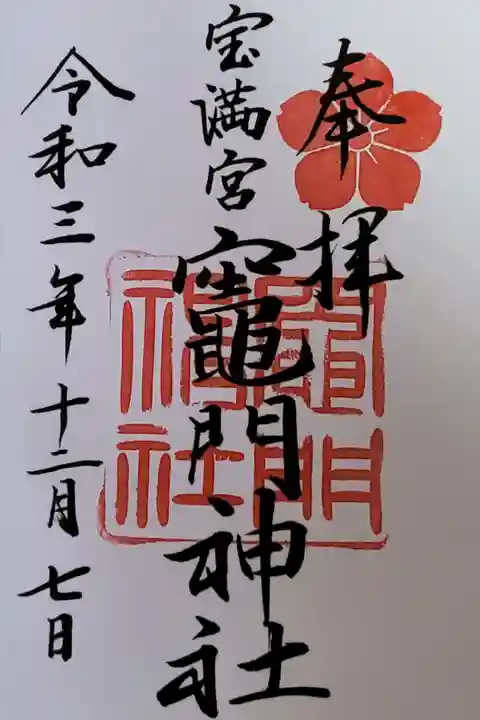 奉拝
宝満宮
竈門神社
令和三年十二月七日
竈門
神社